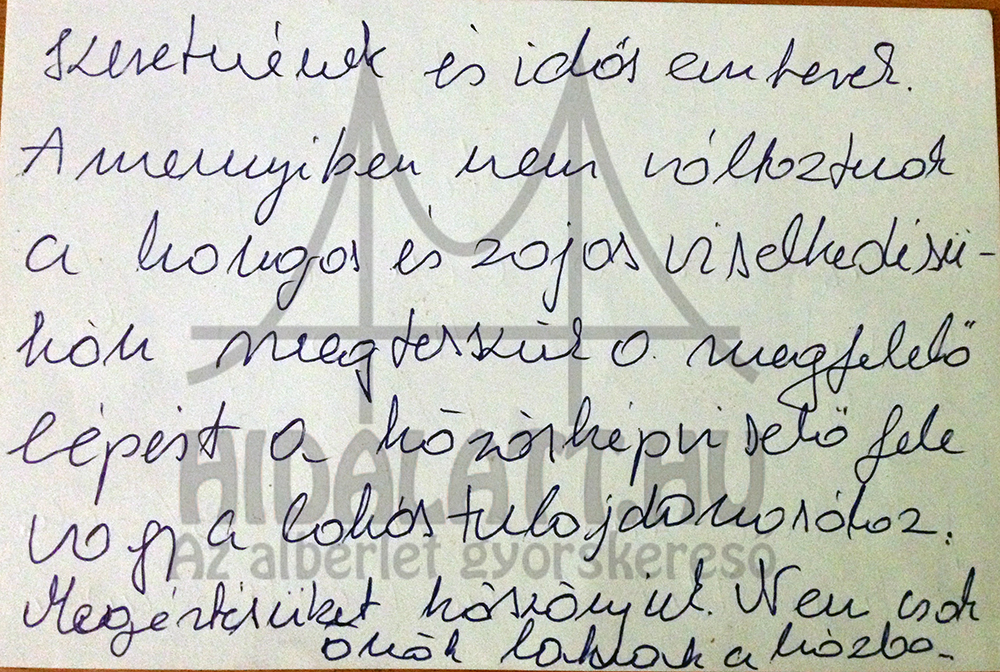 szeretnének és idős emberek.
Amennyiben nem változtnak
a hangos és zajos viselkedésü-
kön megteszük a megfelelő
lépést a közösképviselő fele
vagy a lakástulajdonosához.
Megértésüket köszönjük. Nem csak
önök laknak a házba.
HIDALATT.HU
Az albérlet gyorskereső